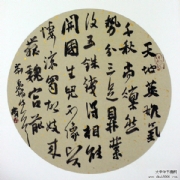 天地英雄氣
千秋尚凛然
势分三足鼎業
復五銖錢得相能
開國生兒不像賢
凄涼蜀故妓來
舞魏宮前